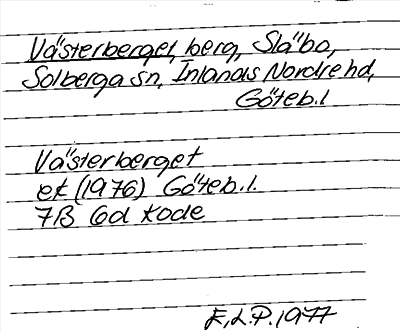 Västerberget, berg, Släbo,
Solberga sn, Inlands Nordre hd,
Göteb. l
Västerberget
ek (1976) Göteb. l.
7B 6d Kode
E.L.P. 1977